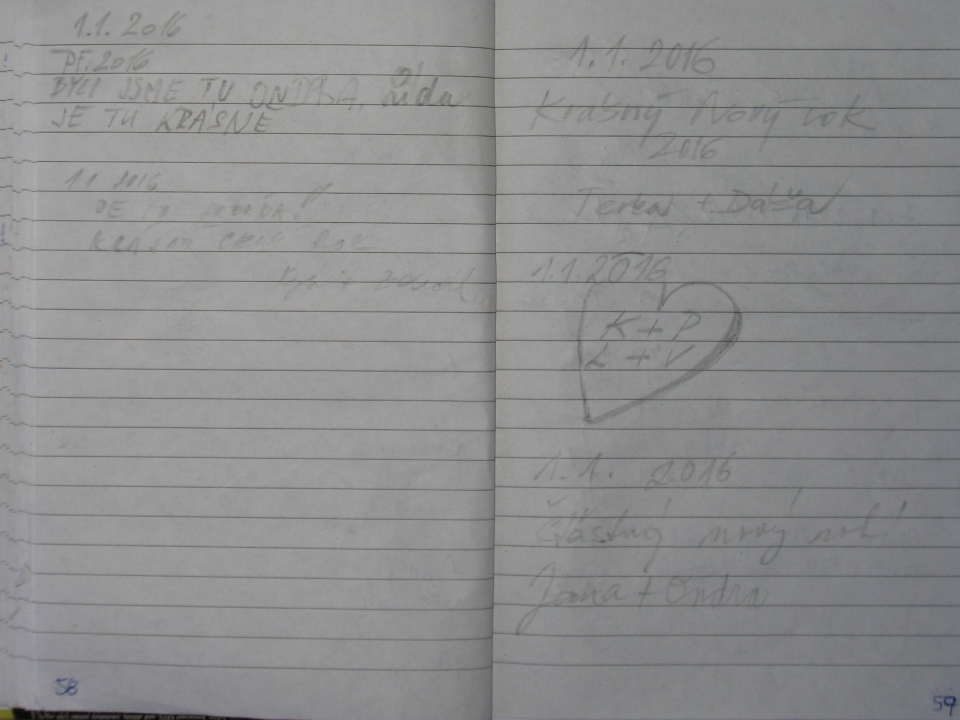 1.1. 2016
PF. 2016
BYLI JSME TU ONDRA, Lída
JE TU KRÁSNĚ
1.1 2016
JE
KRÁSNÝ CELÝ ROK
58
1.1.2016
Krásný Nový rok
2016
Terka + Dáša
1.1.2016
K + P
L + V
1.1. 2016
Šťastný nový rok!
Jana + Ondra
59